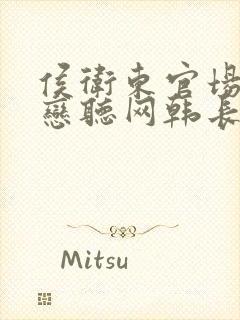 侯衛東官場
戀聽网韩長
Mitsu